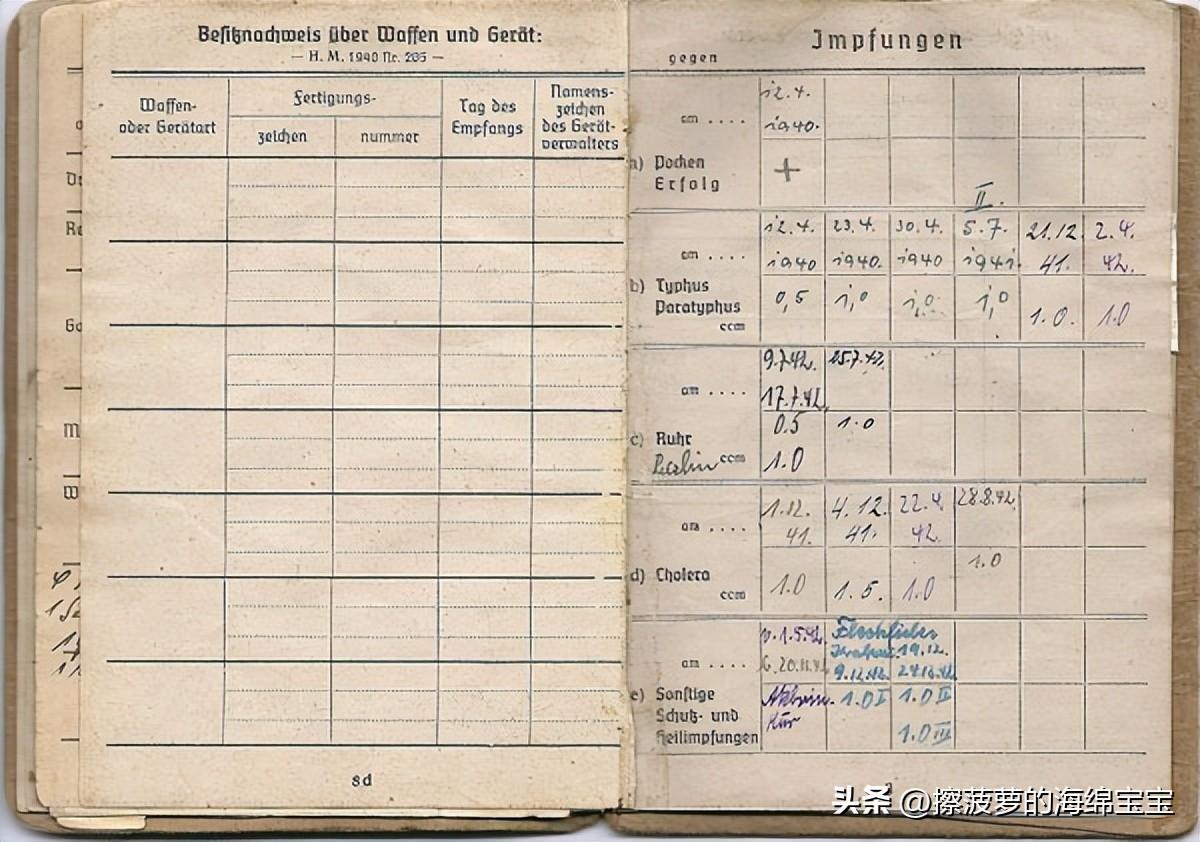 Besitznachweis über Waffen und Gerät:
— H. M. 1940 Nr. 205 —
Waffen-
oder Gerätart
Fertigungs-
zeichen
nummer
Tag des
Empfangs
Namens-
zeichen
des Gerät-
verwalters
8d
Impfungen
gegen
am ....
12.4.
1940.
a) Pocken
Erfolg
+
II.
am ....
12.4. 23.4. 30.4. 5.7. 21.12. 2.4.
1940 1940. 1940 1941. 41. 42.
b) Typhus
Paratyphus
ccm
0,5 1,0 1,0 1,0 1.0. 1.0
9.7.42. 25.7.43.
am ....
17.7.42.
0.5 1.0
c) Ruhr
ccm
1.0
am ....
1.12. 4.12. 22.4. 28.8.42.
41. 41. 42.
1.0
d) Cholera
ccm
1.0 1.5. 1.0
v. 1.5.42. Fleckfieber
19.12.
am ....
9.12.42.
e) Sonstige
Schutz- und
Heilimpfungen
Kur
1.0 I 1.0 II
1.0 III
头条 @擦菠萝的海绵宝宝